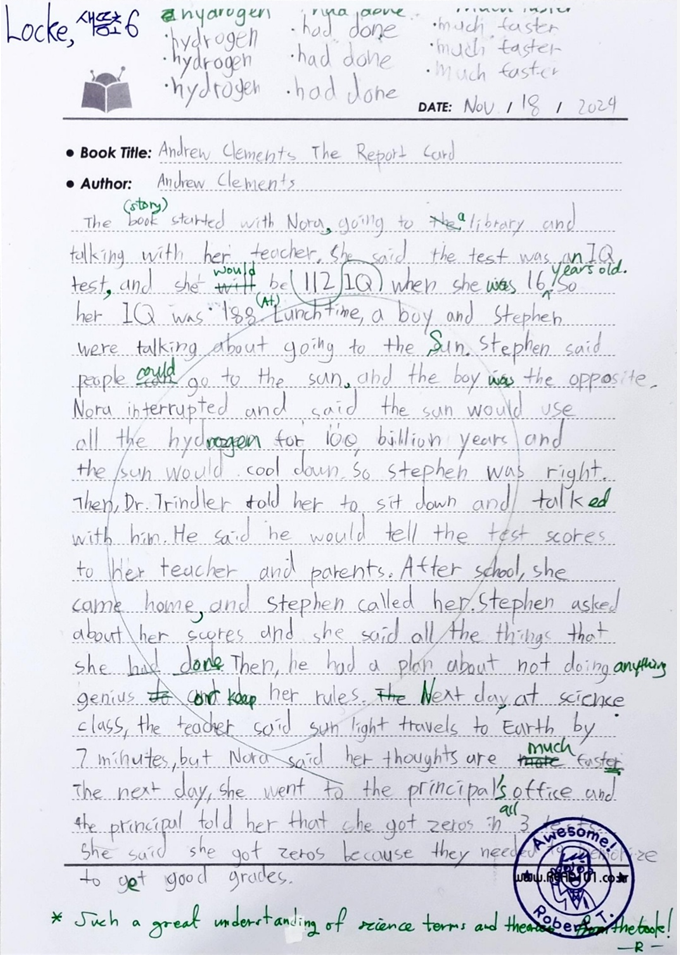 Locke, 새뜸초6
hydrogen had done much faster
·hydrogen ·had done ·much faster
·hydrogen ·had done ·much faster
·hydrogen ·had done ·much faster
DATE: Nov / 18 / 2024
• Book Title: Andrew Clements The Report Card
• Author: Andrew Clements
(story)
The book started with Nora, going to the a library and
talking with her teacher. She said the test was an IQ
test, and she will would be (112 IQ) when she was 16 years old. So
her IQ was 188. (At) Lunchtime, a boy and Stephen
were talking about going to the Sun. Stephen said
people could go to the sun, and the boy was the opposite.
Nora interrupted and said the sun would use
all the hydrogen for 100 billion years and
the sun would cool down. So Stephen was right.
Then, Dr. Trindler told her to sit down and talked
with him. He said he would tell the test scores
to her teacher and parents. After school, she
came home, and Stephen called her. Stephen asked
about her scores and she said all the things that
she had done. Then, he had a plan about not doing anything
genius to or keep her rules. The Next day, at science
class, the teacher said sun light travels to Earth by
7 minutes, but Nora said her thoughts are more much faster
The next day, she went to the principal's office and
the principal told her that she got zeros in all 3
She said she got zeros because they needed to
to get good grades.
Awesome!
www.READ101.co.kr
Robert T.
* Such a great understanding of science terms and from the book!
-R-